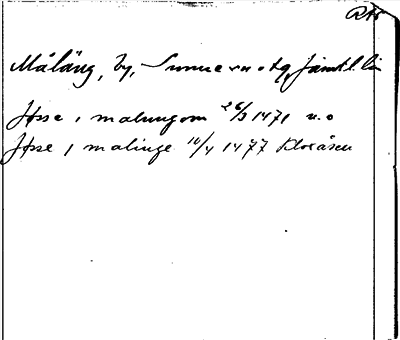 Måläng, by, Sunne sn o tg, Jämtl. län
Jsse i malungom 26/3 1471 u.o
Jsse i malinge 10/4 1477 Kloxåsen